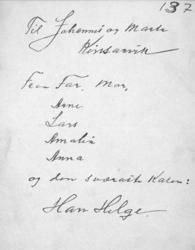 137
Til Johannes og Marta
Kinsarvik
Fra Far, Mor,
Arne
Lars
Amalia
Anna
og den sværaste Karen:
Han Helge.